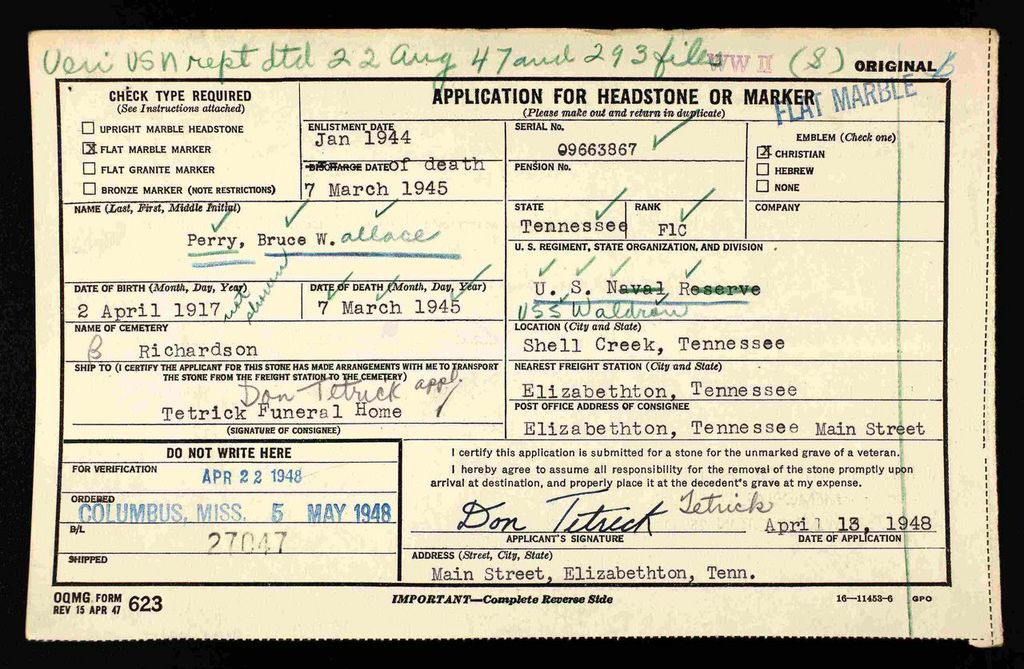 Veri USN rept dtd 22 Aug 47 and 293 file WW II (S) ORIGINAL B
CHECK TYPE REQUIRED
(See Instructions attached)
UPRIGHT MARBLE HEADSTONE
X FLAT MARBLE MARKER
FLAT GRANITE MARKER
BRONZE MARKER (NOTE RESTRICTIONS)
APPLICATION FOR HEADSTONE OR MARKER
(Please make out and return in duplicate)
FLAT MARBLE
ENLISTMENT DATE
Jan 1944
DISCHARGE DATE of death
7 March 1945
SERIAL No.
09663867
PENSION No.
EMBLEM (Check one)
X CHRISTIAN
HEBREW
NONE
NAME (Last, First, Middle Initial)
Perry, Bruce W. allace
STATE
Tennessee
RANK
F1C
COMPANY
U. S. REGIMENT, STATE ORGANIZATION, AND DIVISION
U. S. Naval Reserve
USS Waldron
DATE OF BIRTH (Month, Day, Year)
2 April 1917
not shown
DATE OF DEATH (Month, Day, Year)
7 March 1945
NAME OF CEMETERY
B Richardson
LOCATION (City and State)
Shell Creek, Tennessee
SHIP TO (I CERTIFY THE APPLICANT FOR THIS STONE HAS MADE ARRANGEMENTS WITH ME TO TRANSPORT
THE STONE FROM THE FREIGHT STATION TO THE CEMETERY)
Don Tetrick appl.
Tetrick Funeral Home
(SIGNATURE OF CONSIGNEE)
NEAREST FREIGHT STATION (City and State)
Elizabethton, Tennessee
POST OFFICE ADDRESS OF CONSIGNEE
Elizabethton, Tennessee Main Street
DO NOT WRITE HERE
FOR VERIFICATION
APR 22 1948
ORDERED
COLUMBUS, MISS. 5 MAY 1948
B/L
27047
SHIPPED
I certify this application is submitted for a stone for the unmarked grave of a veteran.
I hereby agree to assume all responsibility for the removal of the stone promptly upon
arrival at destination, and properly place it at the decedent's grave at my expense.
Don Tetrick Tetrick
APPLICANT'S SIGNATURE
April 13, 1948
DATE OF APPLICATION
ADDRESS (Street, City, State)
Main Street, Elizabethton, Tenn.
OQMG FORM
REV 15 APR 47 623
IMPORTANT—Complete Reverse Side
16—11453-6 GPO